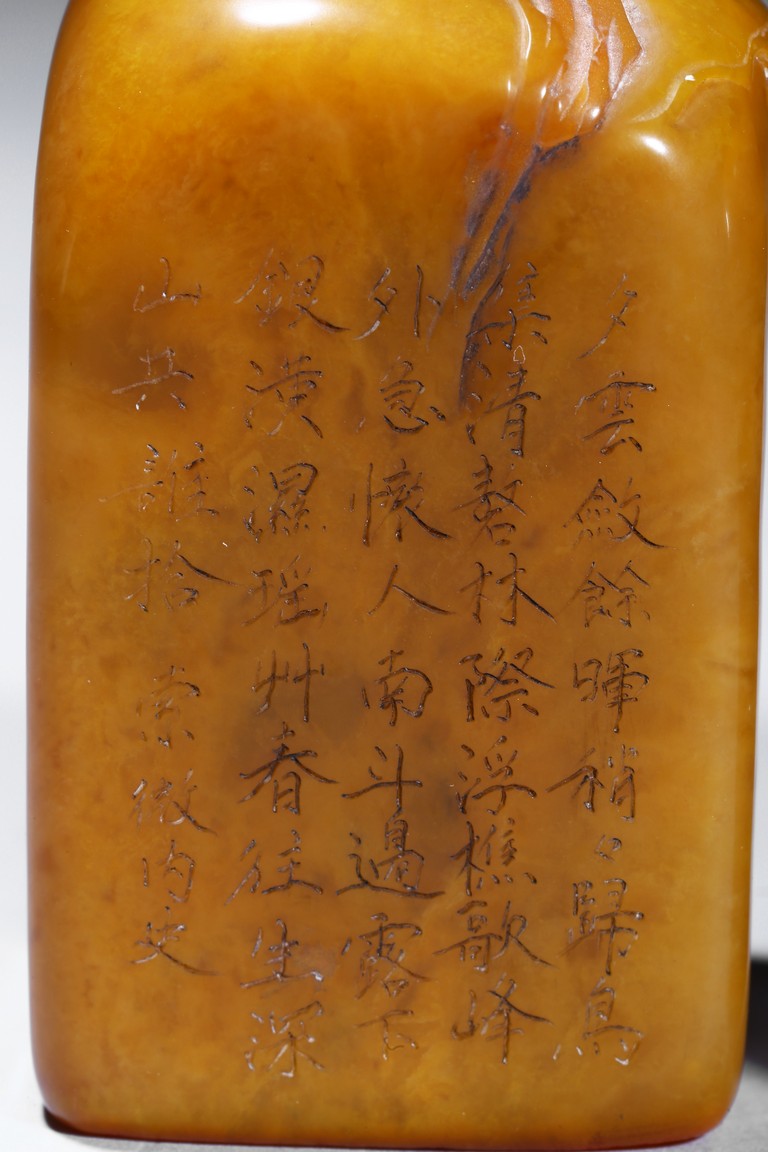 夕雲斂餘暉稍々歸鳥
集清磬林際浮樵歌峰
外急懷人南斗邊露下
銀潢濕瑶艸春徑生深
山共誰拾 索微内史